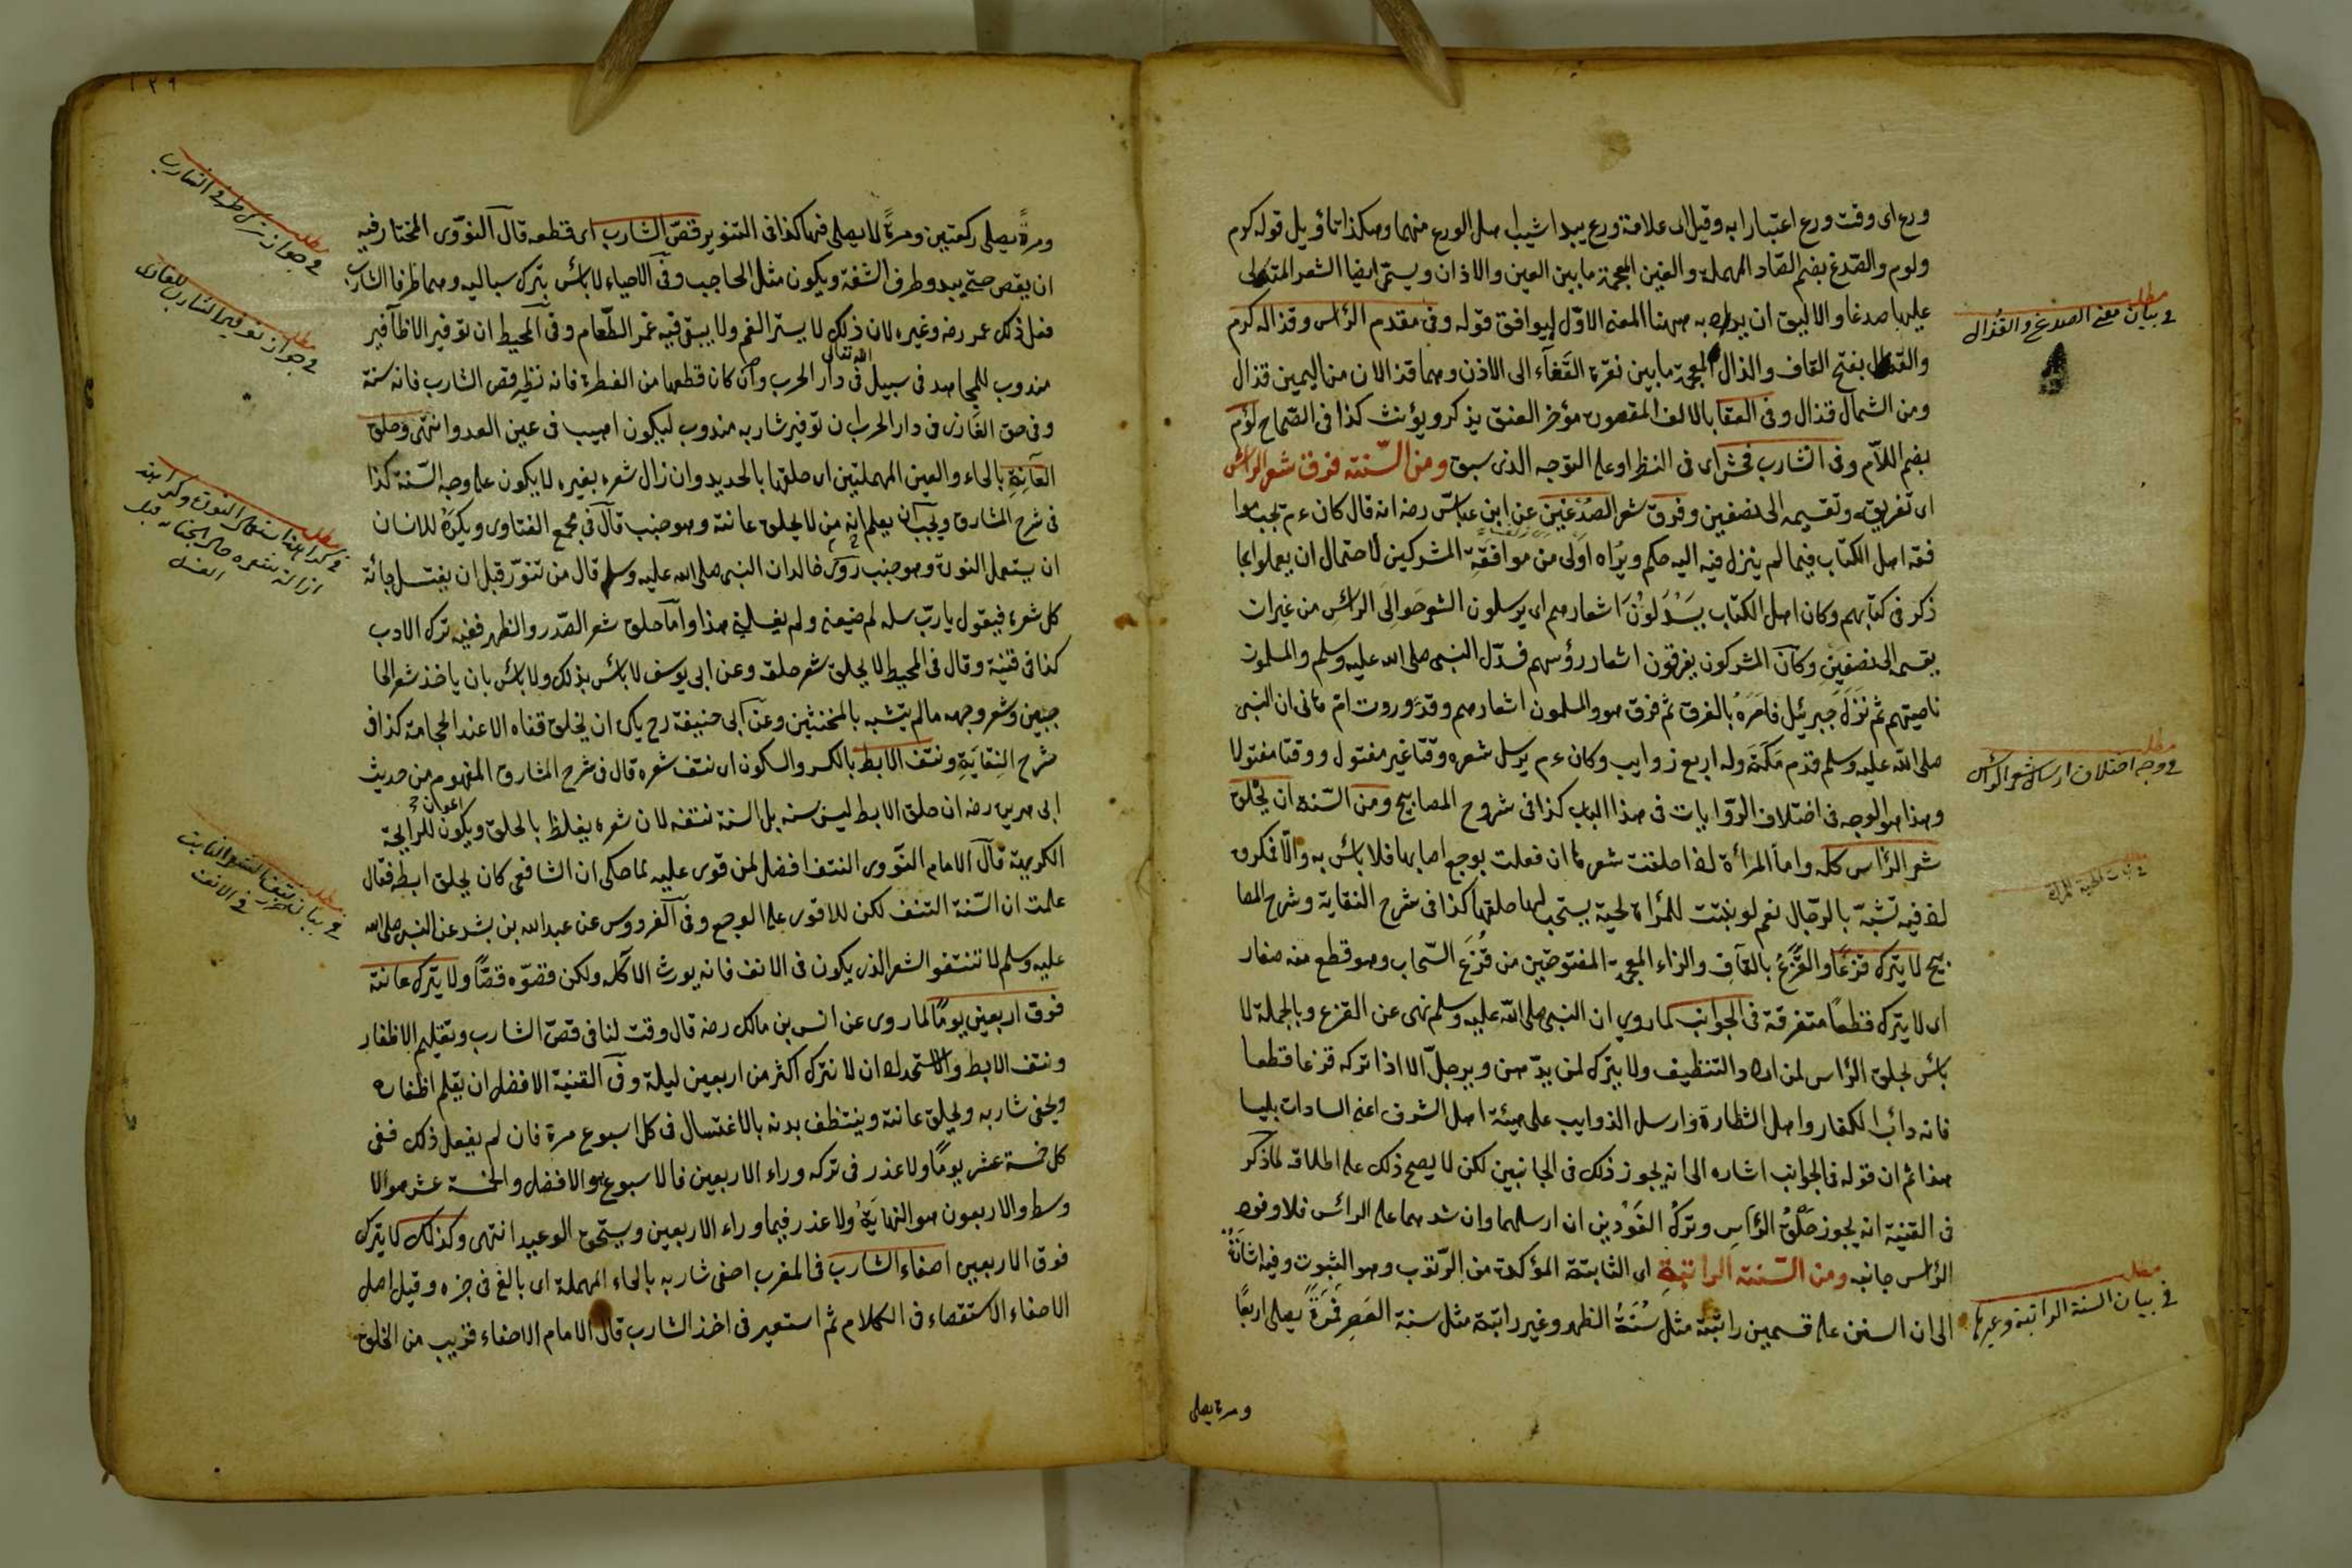 ورع اى وقت ورع اعتبارا به وقيل اى علامة ورع يبدا شيب اهل الورع منهما وهكذا تأويل قوله كرم
ولوم والصّدغ بضم الصّاد المهملة والغين المعجمة ما بين العين والاذان ويسمّى ايضا الشعر المتدلى
عليها صدغا والاليق ان يراد به ههنا المعنى الاوّل ليوافق قوله وفى مقدم الرأس وقذاله كرم
والقذال بفتح القاف والذال المعجمة ما بين نقرة القفاء الى الاذن وهما قذالان من اليمين قذال
ومن الشمال قذال وفى القفا بالالف المقصورة مؤخر العنق يذكر ويؤنث كذا فى الصّحاح لؤم
بضم اللّام وفى الشارب فحش اى فى النظر او على التوجه الذى سبق ومن السّنة فرق شعر الرأس
اى تفريقه وتقسيمه الى نصفين وفرق شعر الصدغين عن ابن عباس رضه انه قال كان ءم يحب موا
فقة اهل الكتاب فيما لم ينزل فيه اليه حكم ويراه اولى من موافقة المشركين لاحتمال ان يعملوا بما
ذكر فى كتابهم وكان اهل الكتاب يسدلون اشعارهم اى يرسلون الشعر حوالى الرأس من غير ان
يقسم الى نصفين وكان المشركون يفرقون اشعار رؤسهم فسدل النبى صلى الله عليه وسلم والمسلمون
ناصيتهم ثم نزل جبرئيل فامره بالفرق ثم فرق هو والمسلمون اشعارهم وقد وروت ام هانى ان النبى
صلى الله عليه وسلم قدم مكة وله اربع زوايب وكان ءم يرسل شعره وقتا غير مفتول ووقتا مفتولا
وهذا هو الوجه فى اختلاف الروايات فى هذا الباب كذا فى شروح المصابيح ومن السّنة ان يحلق
شعر الرأس كله واما المرأة اذا حلقت شعرها ان فعلت لوجع اصابها فلا بأس به والّا فمكروه
لان فيه تشبّه بالرجال نعم لو نبتت للمرأة لحية يستحب لها حلقها كذا فى شرح النقاية وشرح المصا
بيح لا يترك قزعا والقزع بالقاف والزاء المعجمة المفتوحتين من قزع السّحاب وهو قطع منه صغار
اى لا يترك قطعا متفرقة فى الجوانب لما روي ان النبى صلى الله عليه وسلم نهى عن القزع وبالجملة لا
بأس بحلق الرأس لمن اراد التنظيف ولا بتركه لمن يدّهن ويرجلّ الا اذا تركه قزعا قطعا
فانه دأب الكفار واهل الشطارة وارسل الذوايب على هيئة اهل الشرف اعنى السادات بليسا
هذا ثم ان قوله فى الجوانب اشاره الى انه يجوز ذلك فى الجانبين لكن لا يصح ذلك على اطلاقه لما ذكر
فى القنية انه يجوز حلق الرأس وترك الفودين ان ارسلهما وان شدهما على الرائس فلا وفود
الرأس جانبه ومن السّنة الراتبة اى الثابتة المؤكدة من الرتوب وهو الثبوت وفيه اشارة
الى ان السنن على قسمين راتبة مثل سنة الظهر وغير راتبة مثل سنة العصر فمرة يصلى اربعًا
ومرة يصلى
مطلب
فى بيان معنى الصدغ والقذال
مطلب
فى وجه اختلاف ارسال شعر الرأس
مطلب
فى بيان السنة الراتبة وغيرها
١٢٩
ومرةً يصلى ركعتين ومرةً لا يصلى فيها كذا فى التنوير قصّ الشارب اى قطعه قال النوّوى المختار فيه
ان يقص حتى يبدو طرف الشفة ويكون مثل الحاجب وفى الاحياء لا بأس بترك سباليه وهما طرفا الشارب
فعل ذلك عمر رضه وغيره لان ذلك لا يستر الفم ولا يبقى فيه غمر الطّعام وفى المحيط ان توفير الاظافير
مندوب للمجاهد فى سبيل الله تعالى فى دار الحرب وان كان قطعها من الفطرة فانه نظير قص الشارب فانه سنة
وفى حق الغازى فى دار الحرب ان توفير شاربه مندوب ليكون اهيب فى عين العدو انتهى وحلق
العانة بالحاء والعين المهملتين اى حلقها بالحديد وان زال شعره بغيره لا يكون على وجه السّنة كذا
فى شرح المشارق ويجب ان يعلم انه من لا يحلق عانته وهو جنب قال فى مجمع الفتاوى ويكره للانسان
ان يستعمل النورة وهو جنب روى خالد ان النبى صلى الله عليه وسلم قال من تنوّر قبل ان يغتسل جائه
كل شعرة فيقول يا ربّ سله لم ضيعنى ولم يغسلنى هذا واما حلق شعر الصّدر والظهر ففيه ترك الادب
كذا فى قنية وقال فى المحيط لا يحلق شعر حلقه وعن ابى يوسف لا بأس بذلك ولا بأس بان ياخذ شعر الحا
جبين وشعر وجهه ما لم يتشبه بالمخنثين وعن ابى حنيفة رح يكره ان يحلق قفاه الا عند الحجامة كذا فى
شرح النقاية ونتف الابط بالكسر والسكون اى نتف شعره قال فى شرح المشارق المفهوم من حديث
ابى هريره رضه ان حلق الابط ليس سنه بل السنة نتفه لان شعره يغلظ بالحلق ويكون اعوان للرايحة
الكريهة قال الامام النوّوى النتف افضل لمن قوى عليه لما حكى ان الشافعى كان يحلق ابطه فقال
علمت ان السّنة النتف لكن للاقوى على الوجع وفى الفردوس عن عبد الله بن بشر عن النبى صلى الله
عليه وسلم لا تنتفوا الشعر الذى يكون فى الانف فانه يورث الآكله ولكن قصّوه قصًّا ولا يترك عانته
فوق اربعين يومًا لما روى عن انس بن مالك رضه قال وقت لنا فى قصّ الشارب وتقليم الاظفار
ونتف الابط والاستحداد ان لا نترك اكثر من اربعين ليلة وفى القنية الافضل ان يقلم اظفاره
ويحفى شاربه ويحلق عانته وينظف بدنه بالاغتسال فى كل اسبوع مرة فان لم يفعل ذلك ففى
كل خمسة عشر يومًا ولا عذر فى تركه وراء الاربعين فالاسبوع هو الافضل والخمسة عشر هو الا
وسط والاربعون هو النهاية ولا عذر فيما وراء الاربعين ويستحق الوعيد انتهى وكذلك لا يترك
فوق الاربعين احفاء الشارب فى المغرب احفى شاربه بالحاء المهملة اى بالغ فى جزه وقيل اصل
الاحفاء الاستقصاء فى الكلام ثم استعير فى اخذ الشارب قال الامام الاحفاء قريب من الحلق
مطلب
فى جواز ترك طرفى الشارب
مطلب
فى جواز توفير الشارب للغازى
مطلب
فى كراهة استعمال النورة وكراهة
ازالة شعره حال الجنابة قبل
الغسل
مطلب
الشعر النابت
فى الانف